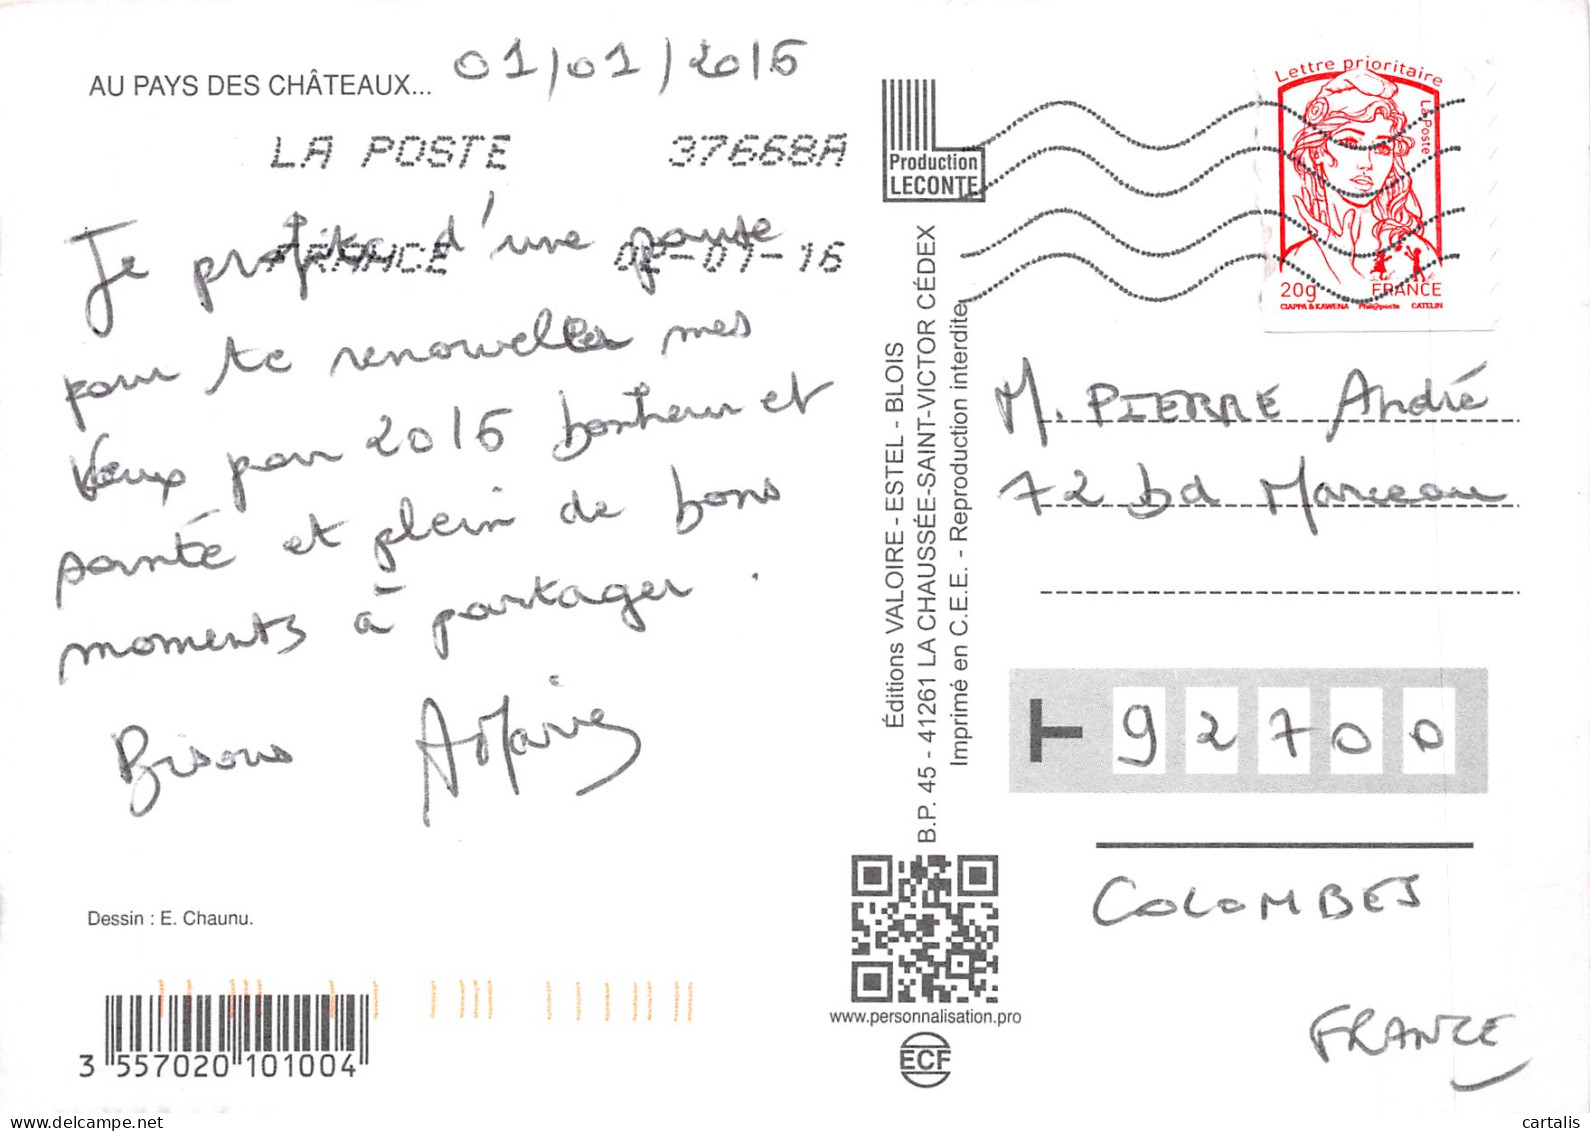 AU PAYS DES CHÂTEAUX...
01/01/2016
LA POSTE 37668A
FRANCE 02-01-16
Je profite d'une pause
pour te renouveller mes
Vœux pour 2016 bonheur et
santé et plein de bons
moments à partager.
Bisous AMarie
Dessin : E. Chaunu.
3 557020 101004
Production
LECONTE
Éditions VALOIRE - ESTEL - BLOIS
B.P. 45 - 41261 LA CHAUSSÉE-SAINT-VICTOR CÉDEX
Imprimé en C.E.E. - Reproduction interdite
www.personnalisation.pro
ECF
Lettre prioritaire
La Poste
20g FRANCE
CIAPPA & KAWENA Phil@poste CATELIN
M. PIERRE André
72 bd Marceau
T 92700
COLOMBES
FRANCE
cartalis